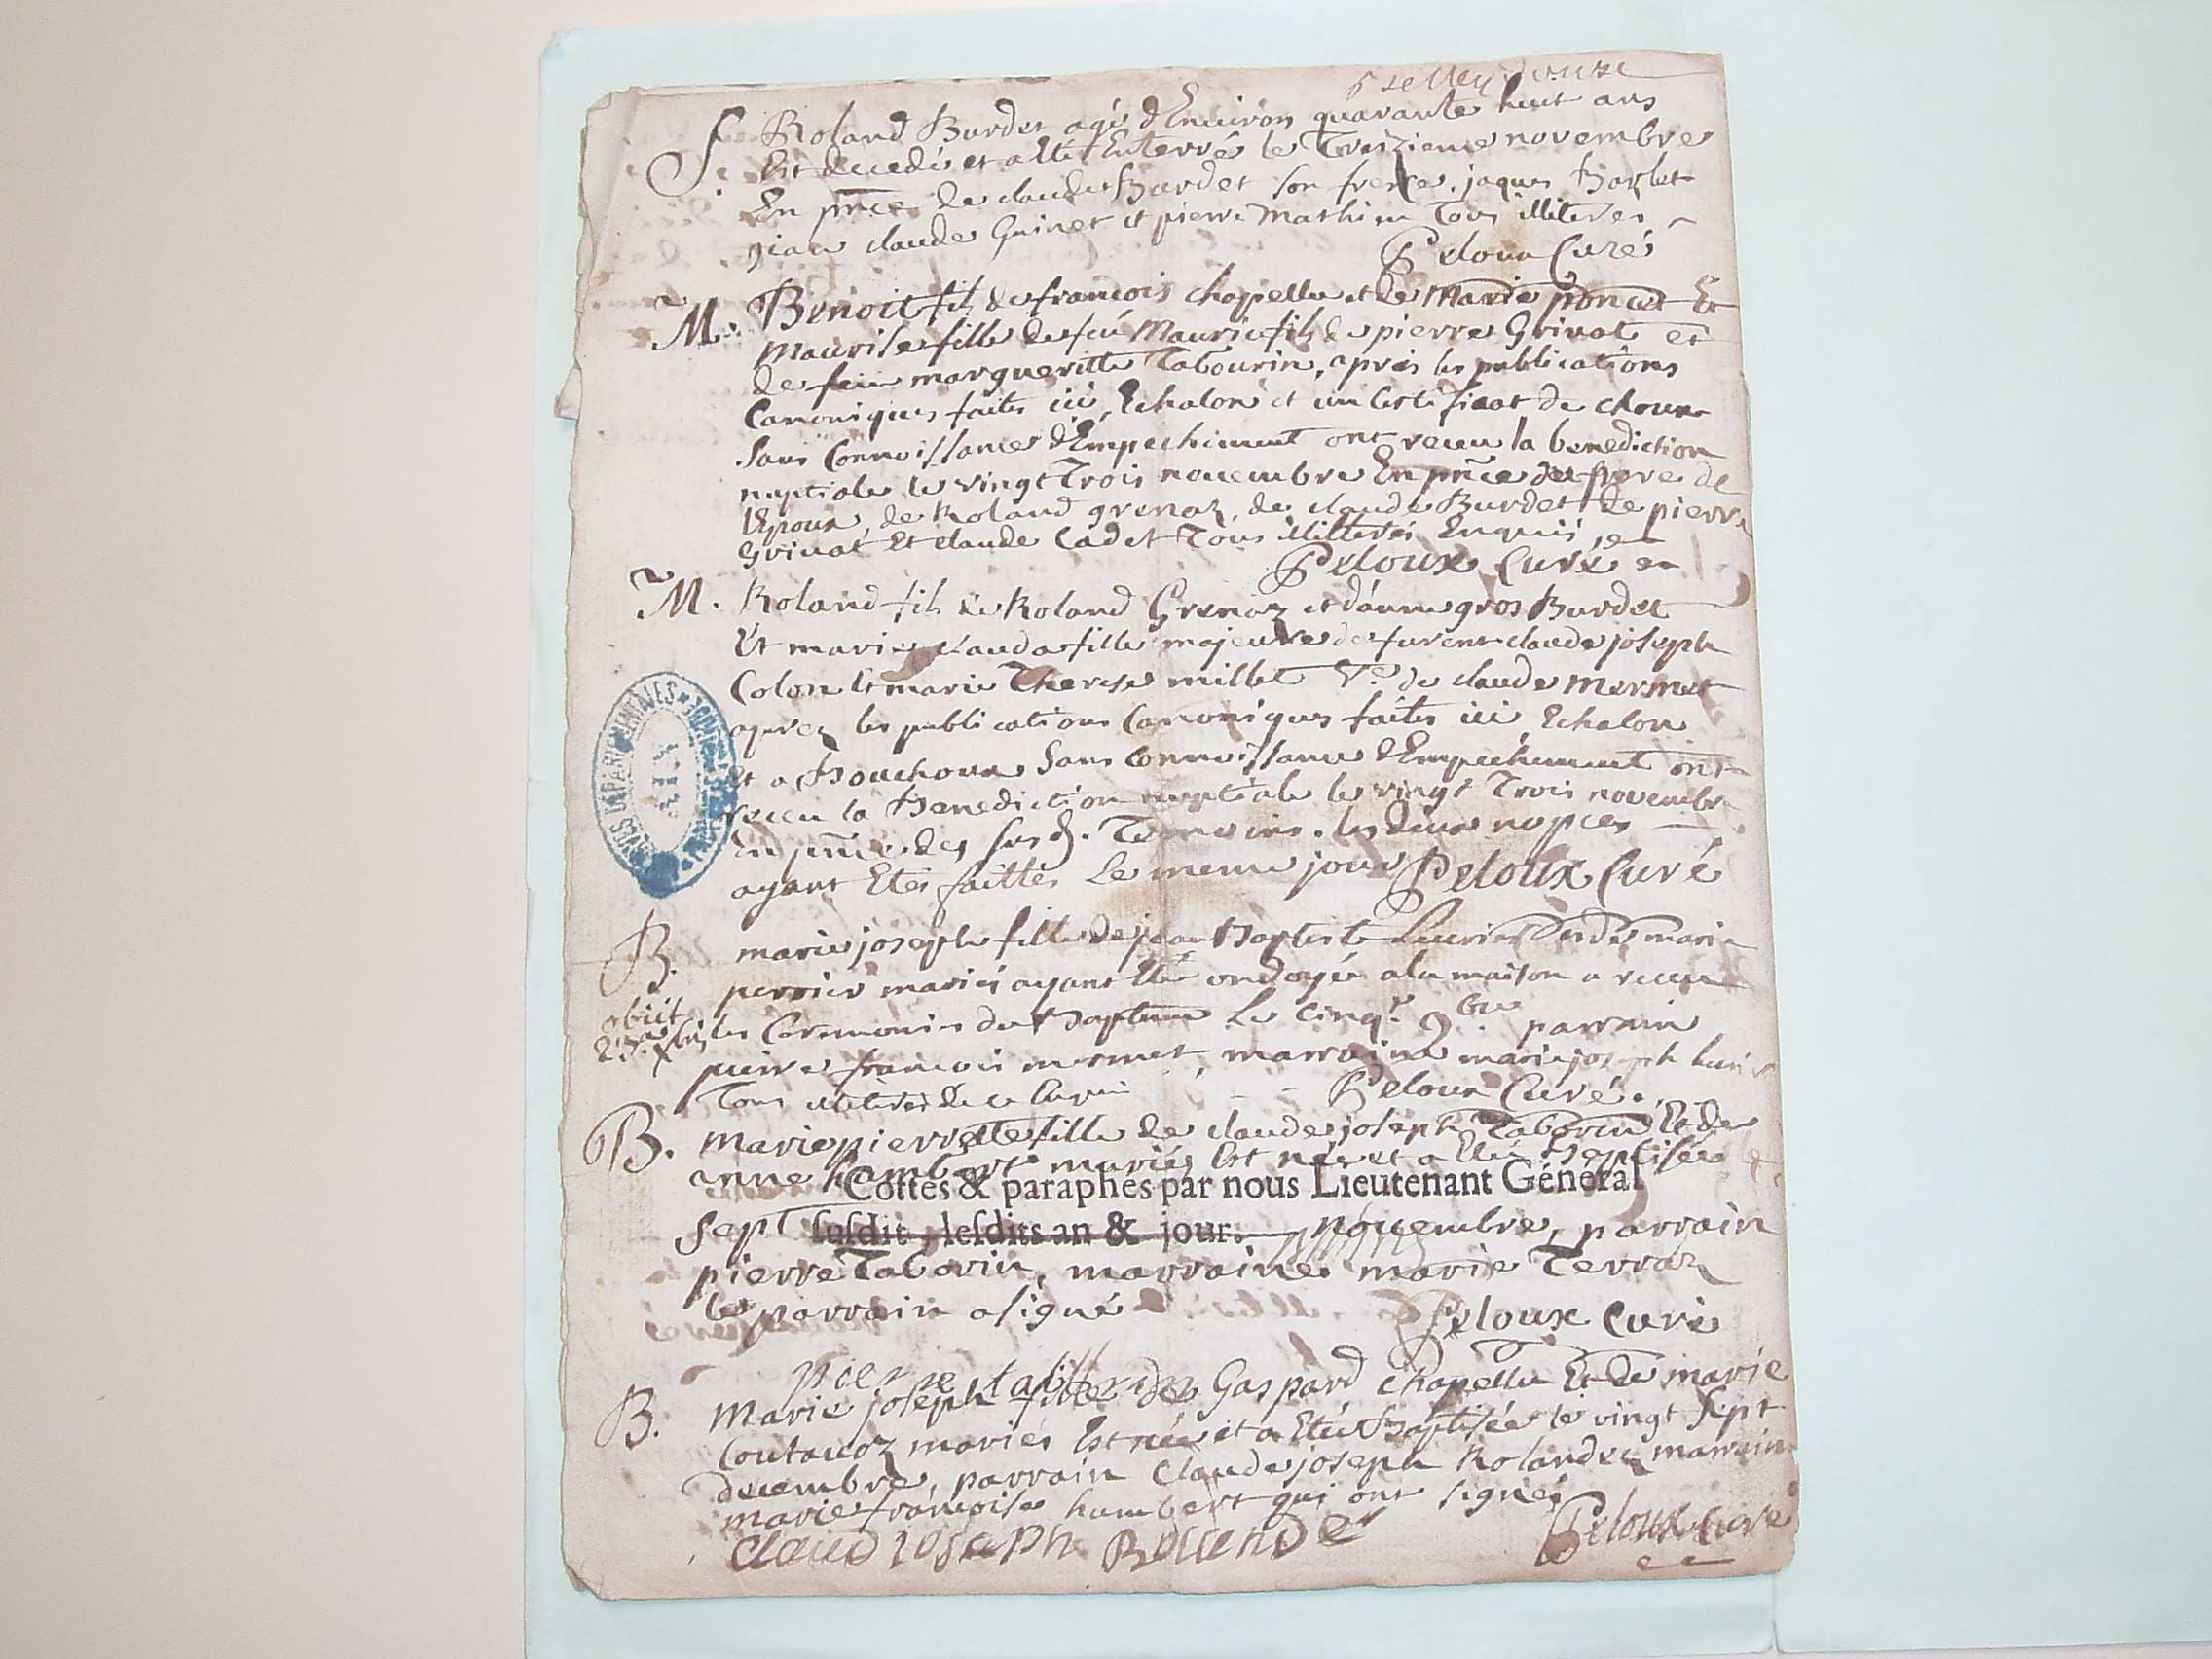 S. Roland Burdet agé d'Environ quarante huit ans
Est decedé et a Eté Enterré le Treizieme novembre
En pnce de claude Burdet son frere, jaques Barlet
jean claude Guinet et pierre Mathieu Tous illiteres
Peloux Curé
M. Benoit fils de francois chapellu et de Marie poncet Et
Maurise fille de feu Maurice fils de pierre Grivat et
de feue margueritte Tabourin, aprés les publications
Canoniques faites ici, Echalon et un Certificat de choux
Sans Connoissance d'Empechement ont receu la benediction
nuptiale le vingt Trois novembre En pnce du frere de
l'Epoux, de Roland grenaz, de claude Burdet de pierre
Grivat Et claude Cadet Tous illitteres Enquis
Peloux Curé
M. Roland fils de Roland Grenaz et d'anne gros Burdet
Et marie clauda fille majeure de furent claude joseph
Colon Et marie Therese millet Ve de claude Mermet
aprez les publications Canoniques faites ici Echalon
Et a Bouchoux Sans Connoissance d'Empechement ont
receu la Benediction nuptiale le vingt Trois novembre
En pnce des susd. Temoins. les deux nopces
ayant Etés faittes Le meme jour Peloux Curé
B. marie joseph fille de jean Baptiste Et de marie
perrier mariés ayant Eté ondoyée a la maison a receu
obiit
les Ceremonies du Baptême Le Cinq.e 9bre parrain
pierre francois mermet, marraine marie joseph
Tous illiteres de ce Enquis Peloux Curé.
B. Marie pierrette fille de claude joseph Taborin Et de
anne humbert mariés Est née et a Eté Baptisée le
Cottés & paraphés par nous Lieutenant Général
sept susdit, lesdits an & jour. novembre, parrain
pierre Taborin, marraine marie Terraz
le parrain a signé Peloux Curé
pierre taborin
B. Marie joseph fille de Gaspard chapellu Et de marie
Coutavoz mariés Est née et a Eté Baptisée le vingt sept
decembre, parrain Claude joseph Rolandez marraine
marie francoise humbert qui ont signés
Claud Joseph Rollandez Peloux Curé